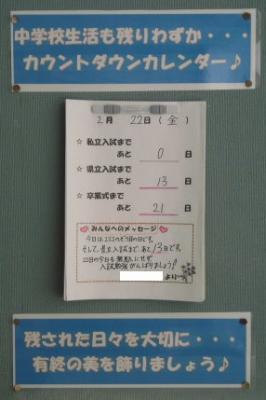 中学校生活も残りわずか・・・
カウントダウンカレンダー♪
2月 22日(金)
☆ 私立入試まで
あと 0 日
☆ 県立入試まで
あと 13 日
☆ 卒業式まで
あと 21 日
みんなへのメッセージ
そして、県立入試まで、あと13日です。
入試勉強がんばりましょう!
より
残された日々を大切に・・・
有終の美を飾りましょう♪